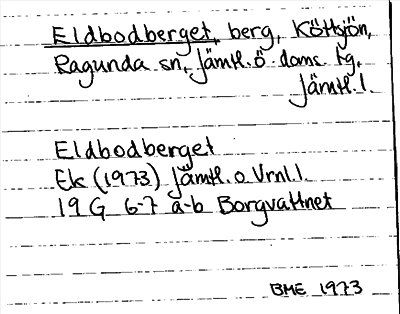 Eldbodberget, berg, Köttsjön,
Ragunda sn, Jämtl. ö. doms. tg,
Jämtl. l.
Eldbodberget
Ek (1973) Jämtl. o Vrnl. l.
19 G 6-7 a-b Borgvattnet
BME 1973